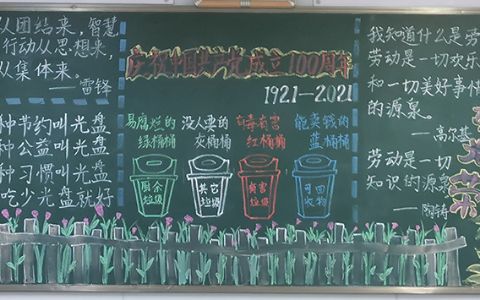 从团结来，智慧
行动从思想来，
从集体来。
——雷锋
种节约叫光盘
种公益叫光盘
种习惯叫光盘
吃少光盘就好
庆祝中国共产党成立100周年
1921—2021
易腐烂的
绿桶桶
没人要的
灰桶桶
有毒有害
红桶桶
能卖钱的
蓝桶桶
厨余
垃圾
其它
垃圾
有害
垃圾
可回
收物
我知道什么是劳
劳动是一切欢乐
和一切美好事情
的源泉
——高尔基
劳动是一切
知识的源泉
——陶铸
荣